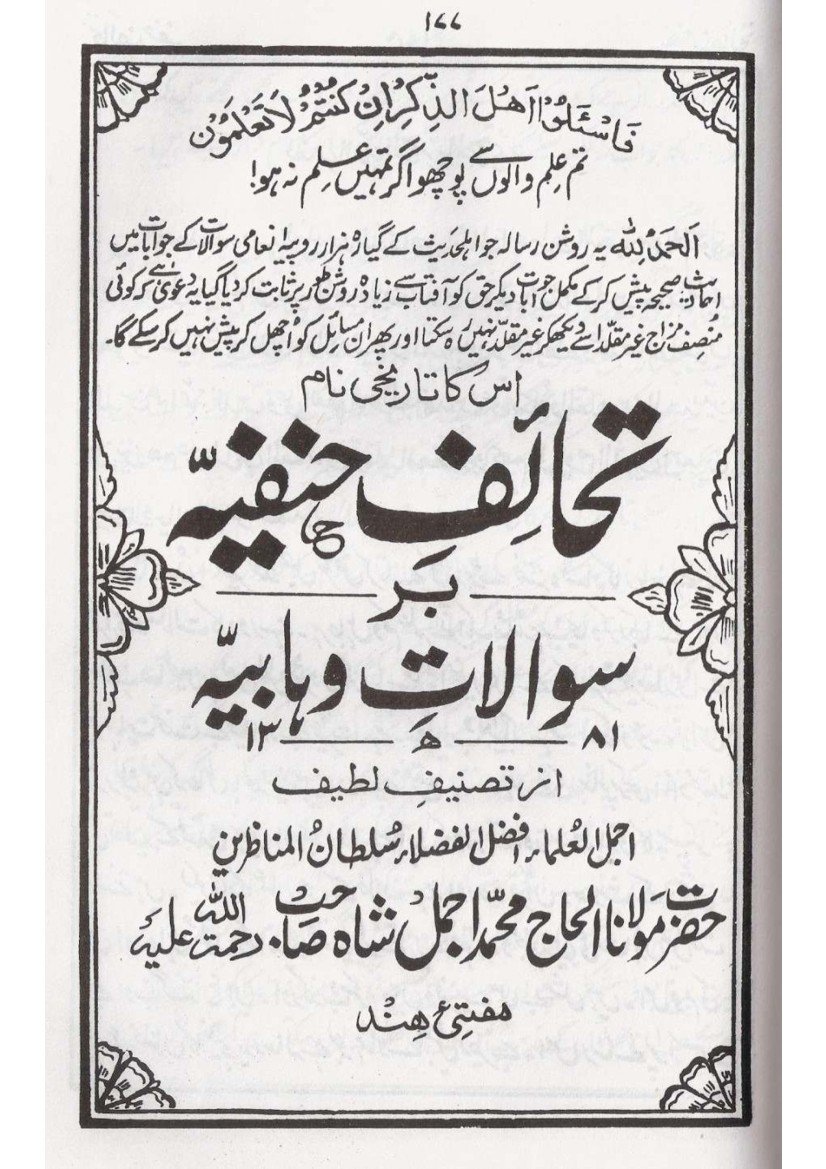 ۱۷۷
فَاسْئَلُوْا اَهْلَ الذِّكْرِ اِنْ كُنْتُمْ لَا تَعْلَمُوْنَ
تم علم والوں سے پوچھو اگر تمہیں علم نہ ہو!
اَلْحَمْدُ لِلّٰہ یہ روشن رسالہ جو اہلحدیث کے گیارہ ہزار روپیہ انعامی سوالات کے جوابات میں
احادیث صحیحہ پیش کرکے مکمل جوابات دیکر حق کو آفتاب سے زیادہ روشن طور پر ثابت کردیا گیا یہ دعویٰ ہے کہ کوئی
منصف مزاج غیر مقلد اسے دیکھ کر غیر مقلد نہیں رہ سکتا اور پھر ان مسائل کو اچھل کر پیش نہیں کرسکے گا۔
اس کا تاریخی نام
تحائفِ حنفیہّ
بَر
سوالاتِ وہابیہّ
۱۳ ھ ۸۱
از تصنیفِ لطیف
اجمل العُلماء افضل الفضلاء سُلطانُ المناظرین
حضرت مولانا الحاج محمّد اجمل شاہ صاحب رحمۃ اللہ علیہ
مفتیٔ ہند